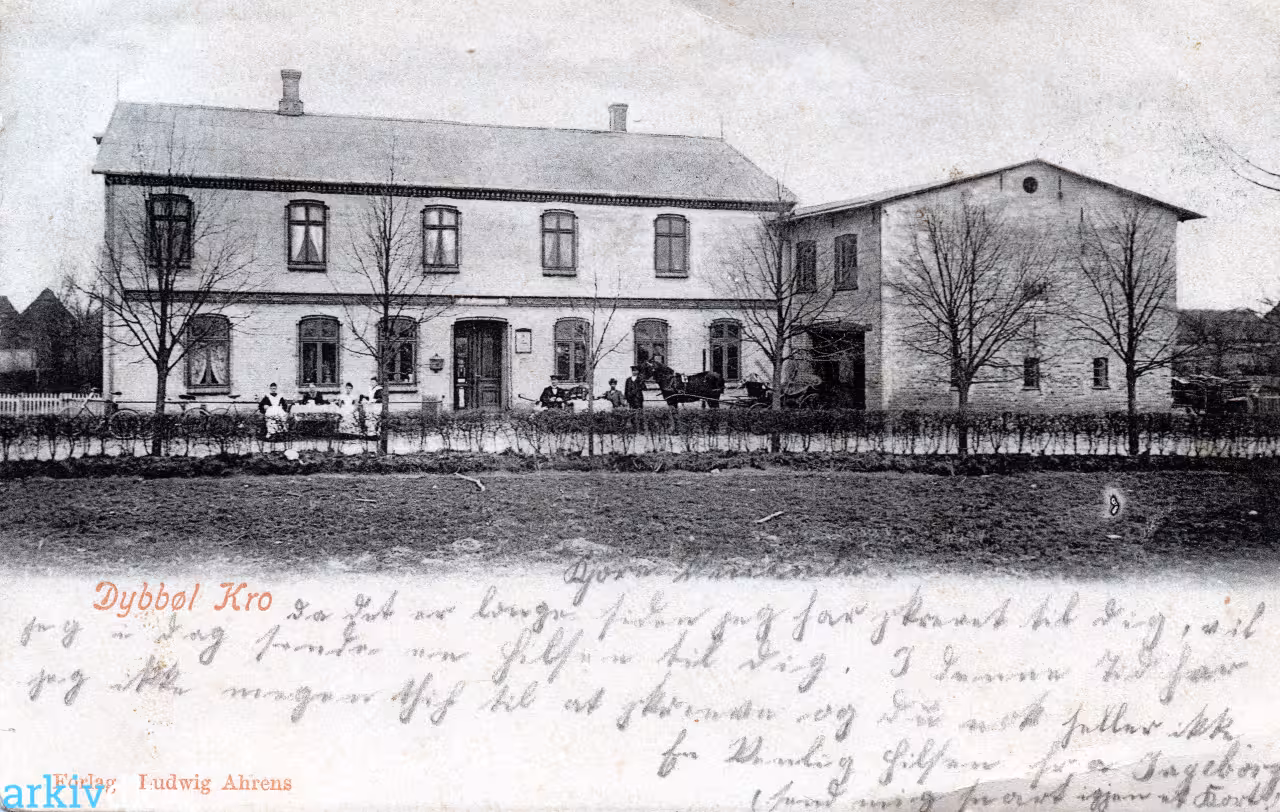 Kjære Veninde
Dybbøl Kro
da det er længe siden jeg har skrevet til dig, vil
jeg i dag sende en Hilsen til dig. I denne Tid har
jeg ikke megen til at skrieve og du nok heller ikke
En Venlig Hilsen fra Ingeborg
(send mig snart igjen et Kort)
Forlag Ludwig Ahrens
arkiv